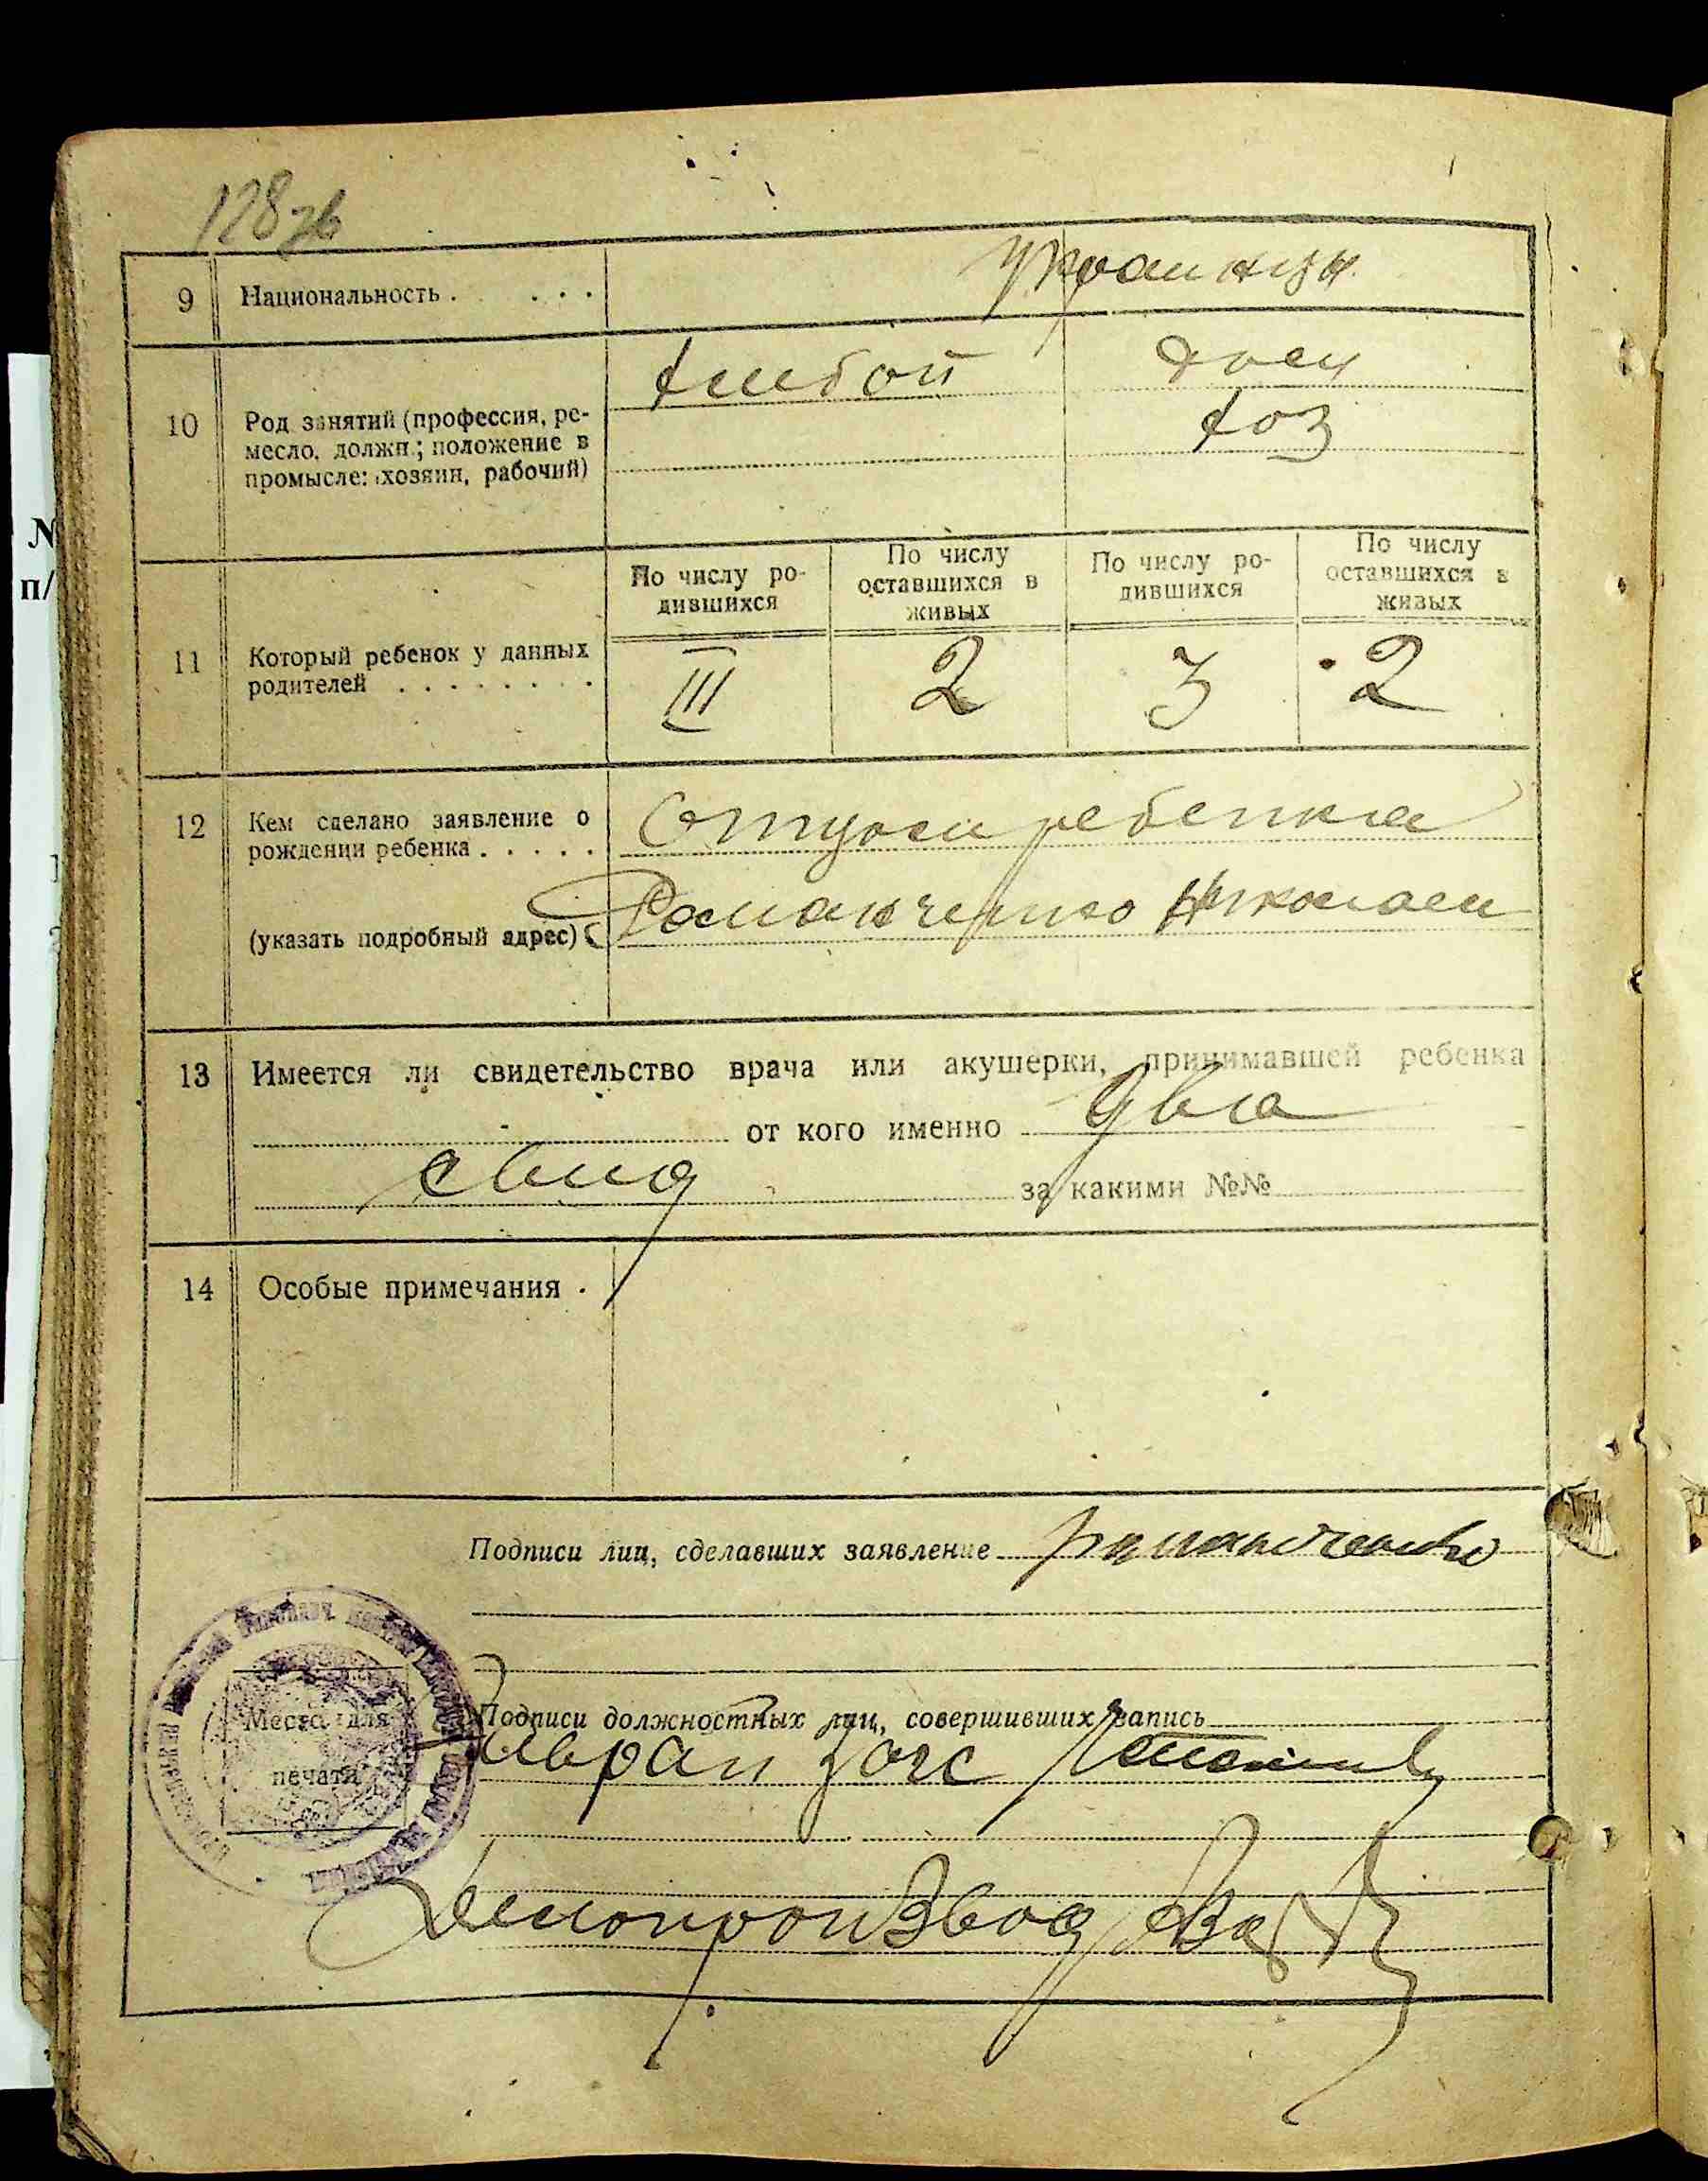 128 зв
9 Национальность . . . . украинцы
10 Род занятий (профессия, ре-
месло, должн.; положение в
промысле: хозяин, рабочий)
хлебой дом
хоз
11 Который ребенок у данных
родителей . . . . . . . .
По числу ро-
дившихся
По числу
оставшихся в
живых
По числу ро-
дившихся
По числу
оставшихся в
живых
III 2 3 2
12 Кем сделано заявление о
рождении ребенка . . . . .
Отцом ребенка
(указать подробный адрес)
Романченко Николаем
13 Имеется ли свидетельство врача или акушерки, принимавшей ребенка
от кого именно два
свид за какими №№
14 Особые примечания .
Подписи лиц, сделавших заявление Романченко
Место для
печати
Подписи должностных лиц, совершивших запись
загс
Делопроизвод